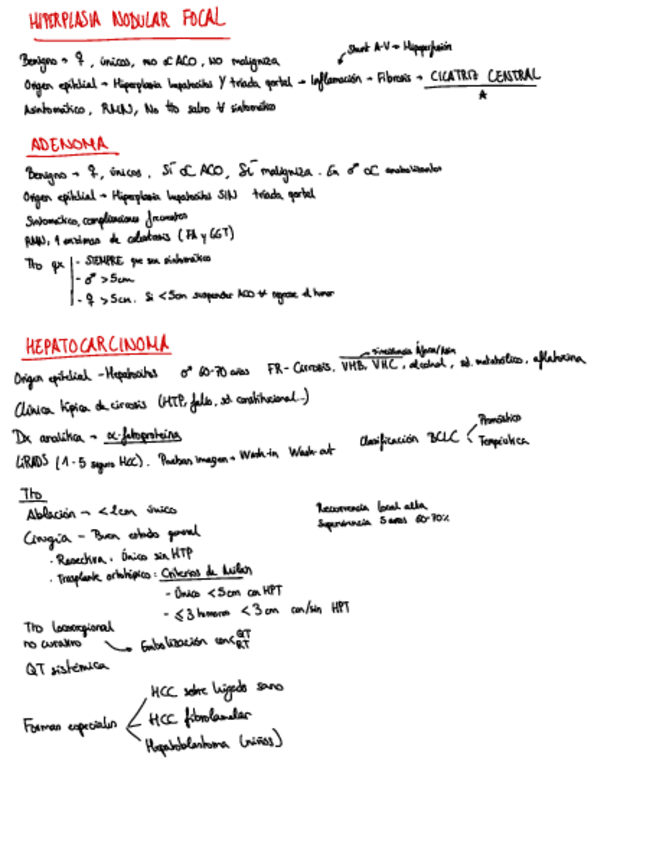 HIPERPLASIA NODULAR FOCAL
Shunt A-V → Hiperperfusión
Benigno → ♀, únicos, no ∝ ACO, NO maligniza
Origen epitelial → Hiperplasia hepatocitos Y triada portal → Inflamación → Fibrosis → CICATRIZ CENTRAL
Asintomático, RMN, No tto salvo sintomático
ADENOMA
Benigno → ♀, únicos, SÍ ∝ ACO, Sí maligniza. En ♂ ∝ anabolizantes
Origen epitelial → Hiperplasia hepatocitos SIN triada portal
Sintomático, complicaciones frecuentes
RMN, ↑ enzimas de colestasis (FA y GGT)
Tto qx
- SIEMPRE que sea sintomático
- ♂ >5cm
- ♀ >5cm. Si <5cm suspender ACO regrese el tumor
HEPATOCARCINOMA
Origen epitelial - Hepatocitos ♂ 60-70 años FR - Cirrosis, VHB, VHC, alcohol, sd. metabólico, aflatoxina
Clínica típica de cirrosis (HTP, fallo, sd constitucional...)
Dx analítica → α-fetoproteína
LIRADS (1-5 seguro HCC). Pruebas imagen → Wash-in Wash-out
Clasificación BCLC < Pronóstico
Terapéutica
Tto
Ablación → <2cm único
Recurrencia local alta
Supervivencia 5 años 60-70%
Cirugía - Buen estado general
· Resectiva. Único sin HTP
· Trasplante ortotópico: Criterios de Milan
- Único <5cm con HPT
- ≤3 tumores <3cm con/sin HPT
Tto locorregional
no curativo → Embolización con < QT
RT
QT sistémica
Formas especiales
HCC sobre hígado sano
HCC fibrolamelar
Hepatoblastoma (niños)